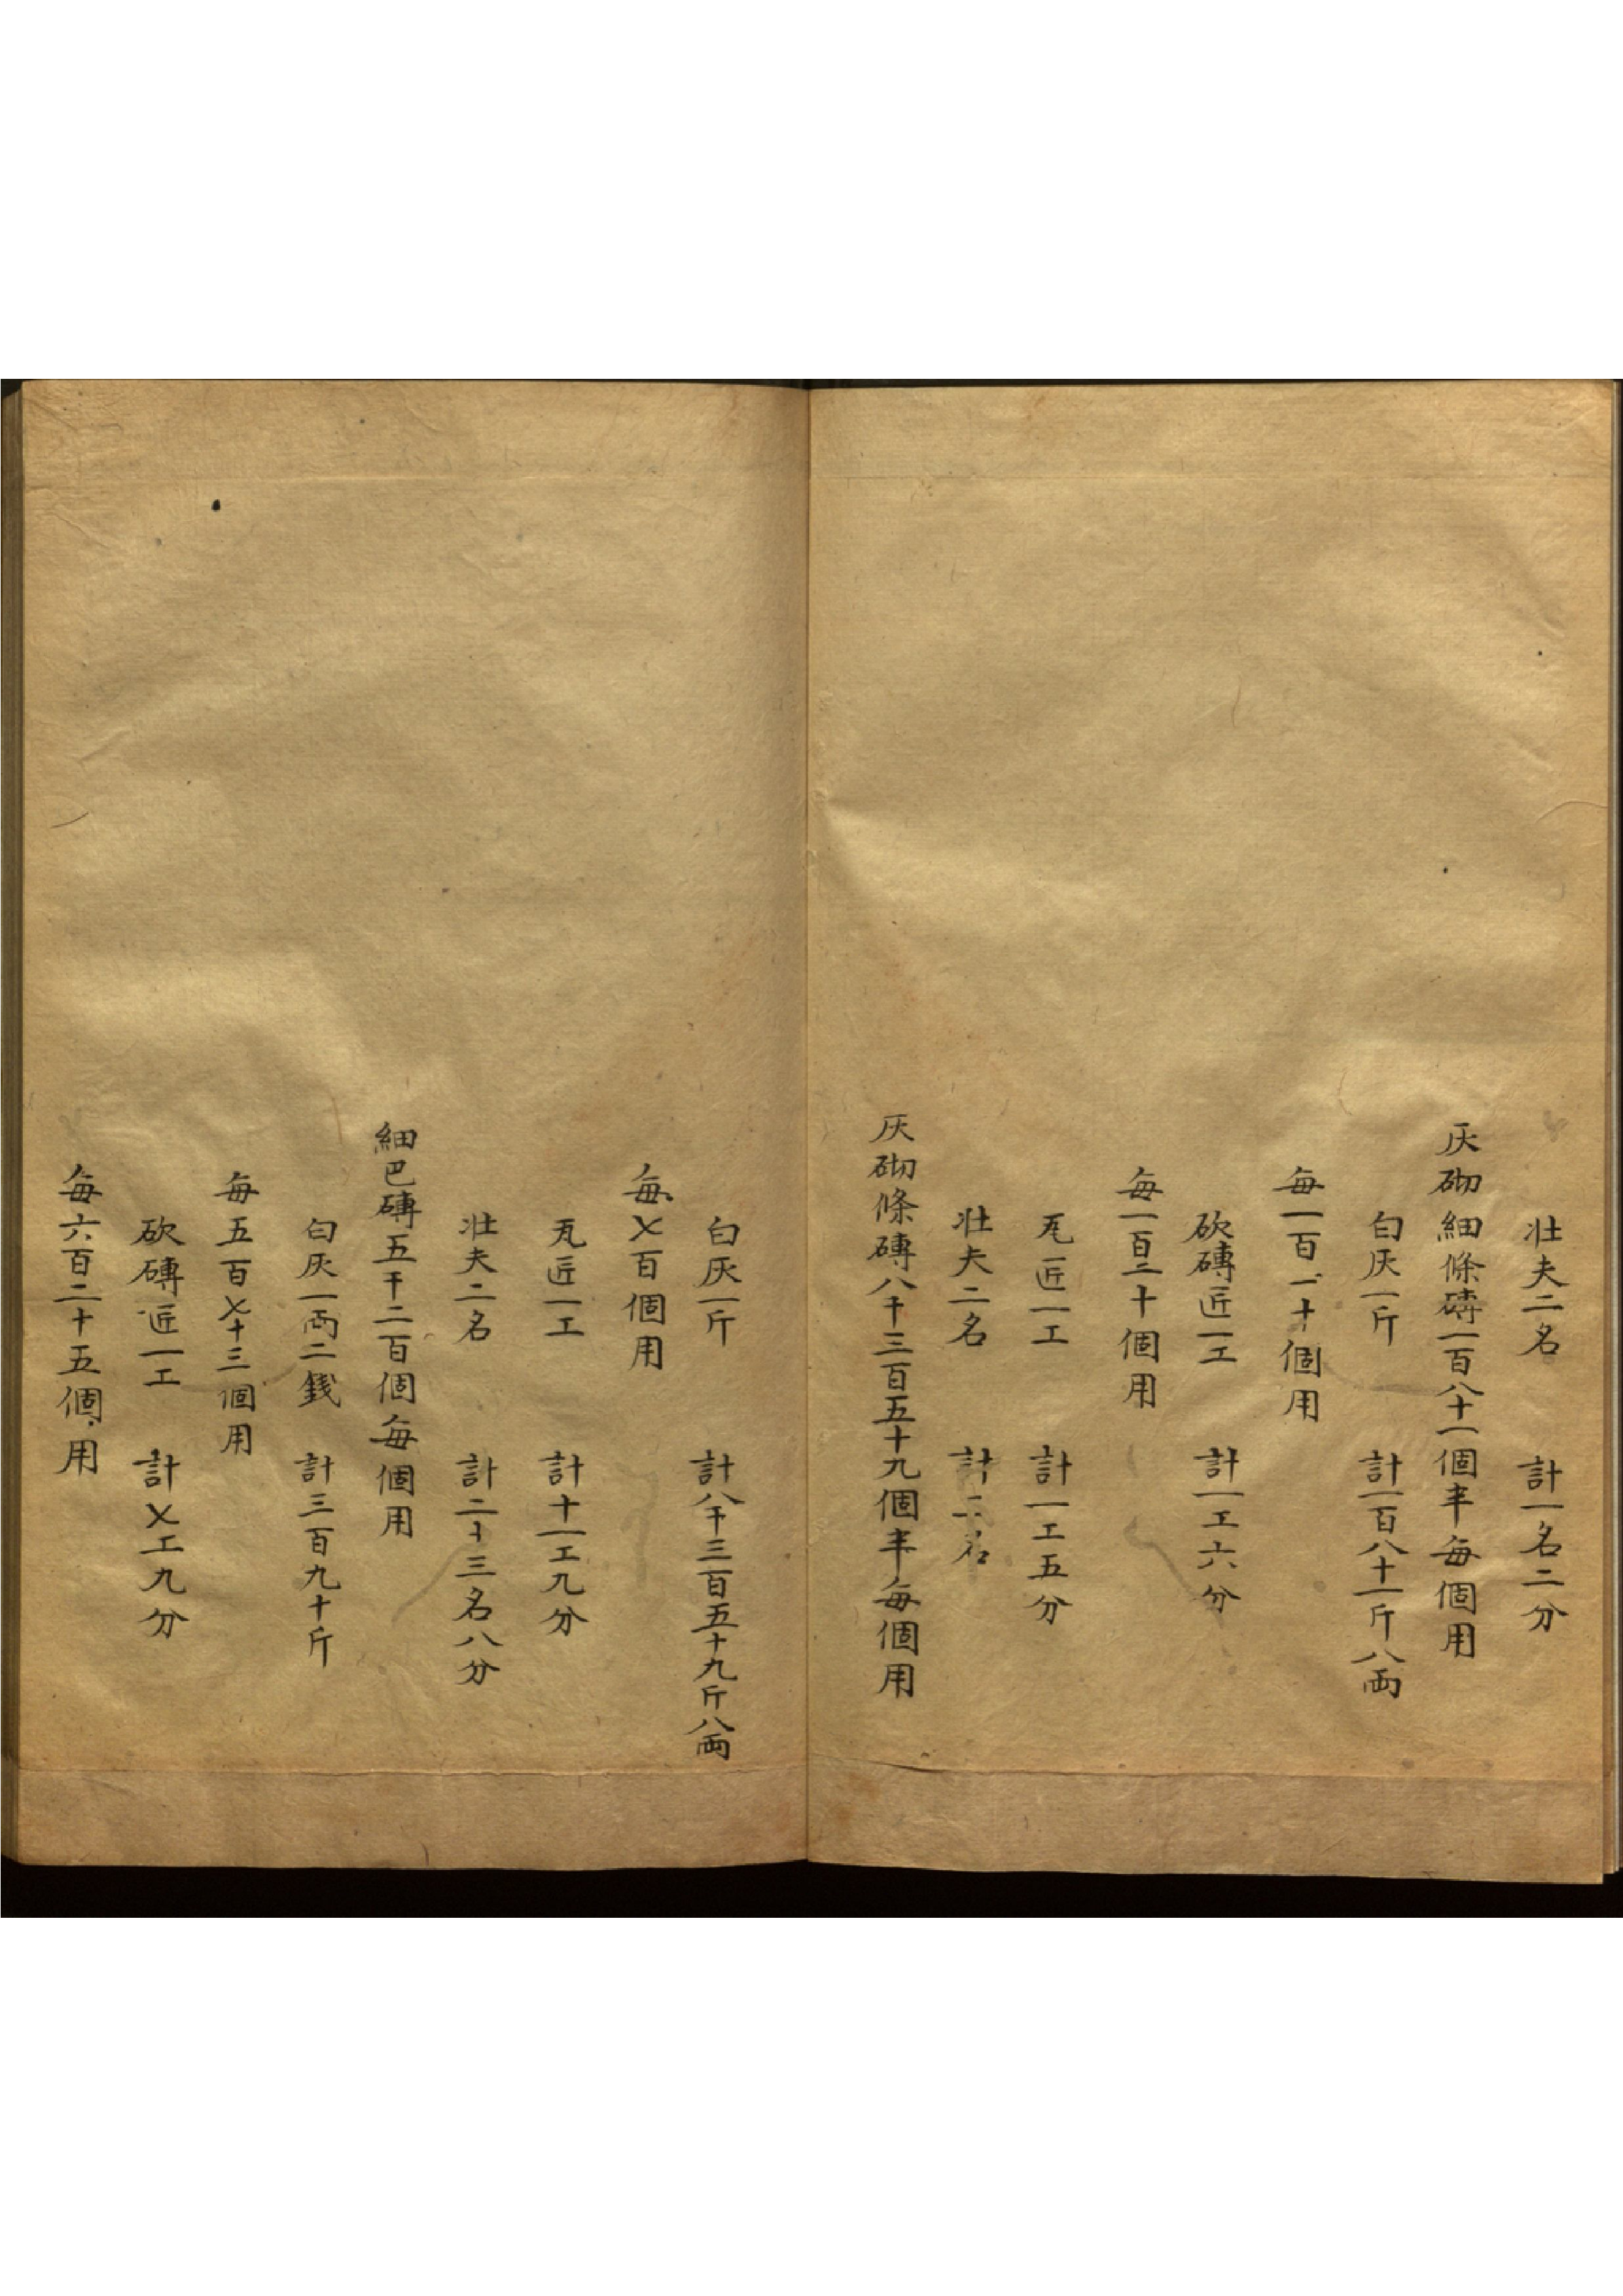 壮夫二名 計一名二分
灰砌細條磚一百八十一個半每個用
白灰一斤 計一百八十一斤八両
每一百一十個用
砍磚匠一工 計一工六分
每一百二十個用
瓦匠一工 計一工五分
壮夫二名 計二名
灰砌條磚八千三百五十九個半每個用
白灰一斤 計八千三百五十九斤八両
每七百個用
瓦匠一工 計十一工九分
壮夫二名 計二十三名八分
細巴磚五千二百個每個用
白灰一両二銭 計三百九十斤
每五百七十三個用
砍磚匠一工 計七工九分
每六百二十五個用